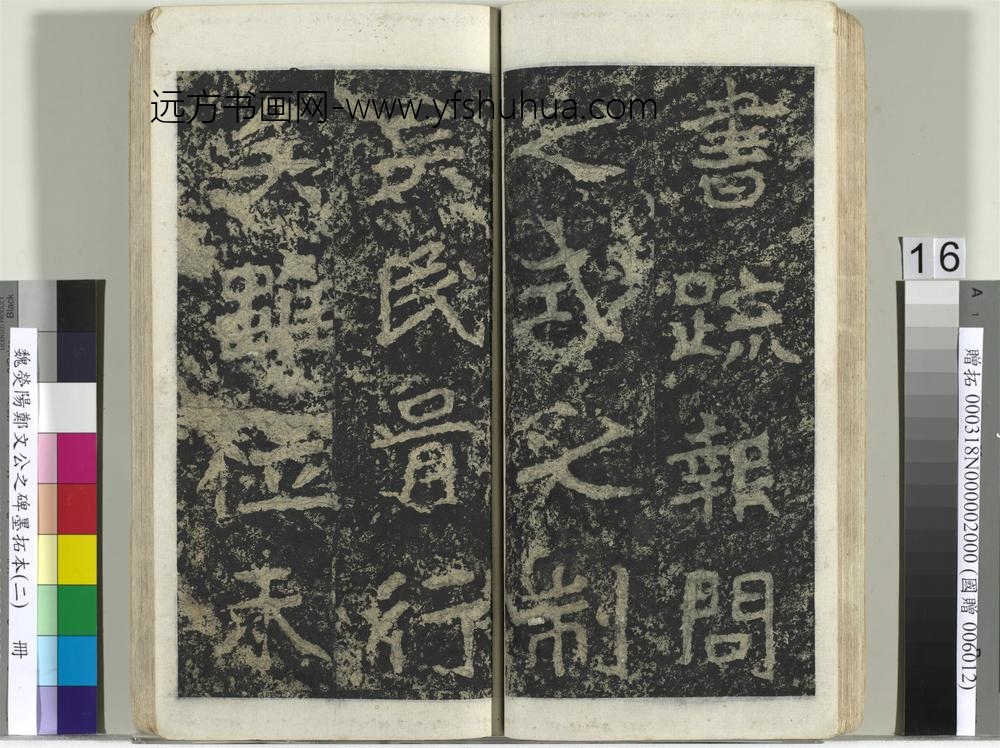 远方书画网-www.yfshuhua.com
書疏報問
之制
兵民行
矣雖位未
16
贈拓 000318N000002000 (國贈 006012)
魏滎陽鄭文公之碑墨拓本(二) 冊
Black
A
1